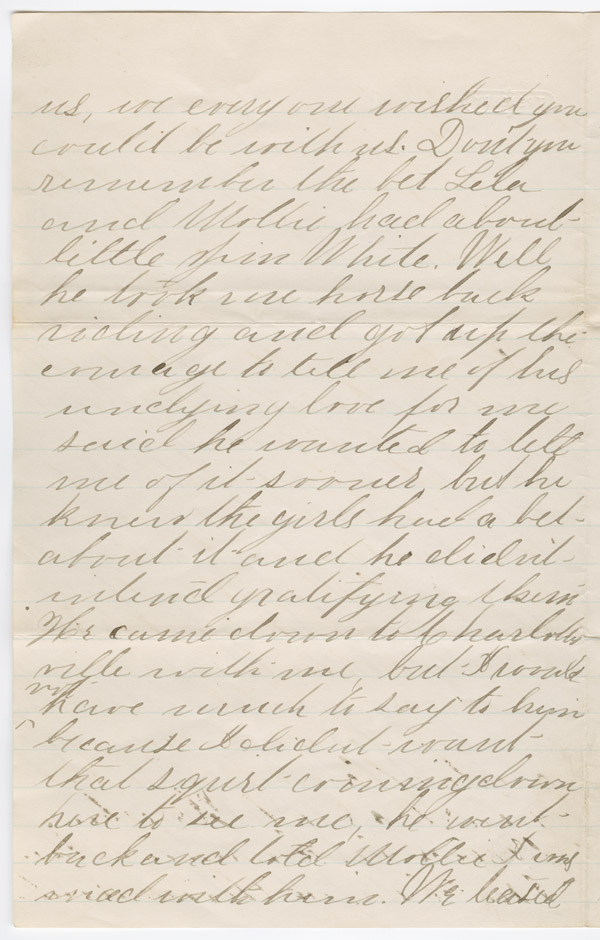 us, we every one wished you
could be with us. Don't you
remember the bet Lela
and Mollie had about
little Jim White. Well
he took me horse back
riding and got up the
courage to tell me of his
undying love for me
said he wanted to tell
me of it sooner, but he
knew the girls had a bet
about it and he didn't
intend gratifying them
He came down to Charlottes
ville with me, but I would
not
have much to say to him
because I didnt want
that squirt coming down
here to see me, he went
back and told Mollie I was
mad with him. We